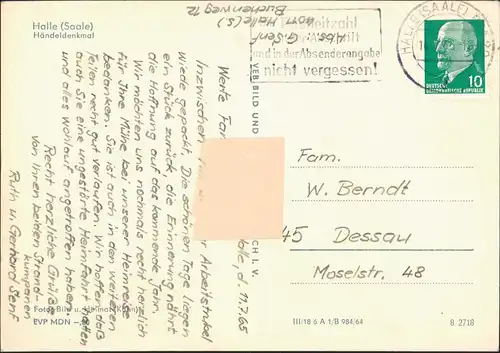 Halle (Saale)
Händeldenkmal
Abs.: G. Senf
401 Halle (S.)
Buchenweg 12
nicht vergessen!
und in der Absenderangabe
HALLE (SAALE)
10
DEUTSCHE
DEMOKRATISCHE REPUBLIK
Halle, d. 11.7.65
Werte Fam.
Inzwischen Arbeitstrikel
wieder gepackt. Die schönen Tage liegen
ein Stück zurück die Erinnerung nährt
die Hoffnung auf das kommende Jahr.
Wir möchten uns nochmals recht herzlich
für Ihre Mühe bei unserer Heimreise
bedanken. Sie ist auch in den weiteren
Teilen recht gut verlaufen. Wir hoffen, daß
auch Sie eine ungestörte Heimfahrt hatten
und alles wohlauf angetroffen haben.
Recht herzliche Grüße
von Ihren beiden Strand-
kumpanen
Ruth u. Gerhard Senf
VEB BILD UND
Fam.
W. Berndt
45 Dessau
Moselstr. 48
EVP MDN
III/18 6 A 1/B 984/64
8 2718